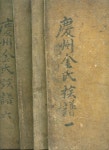 慶州金氏族譜 一